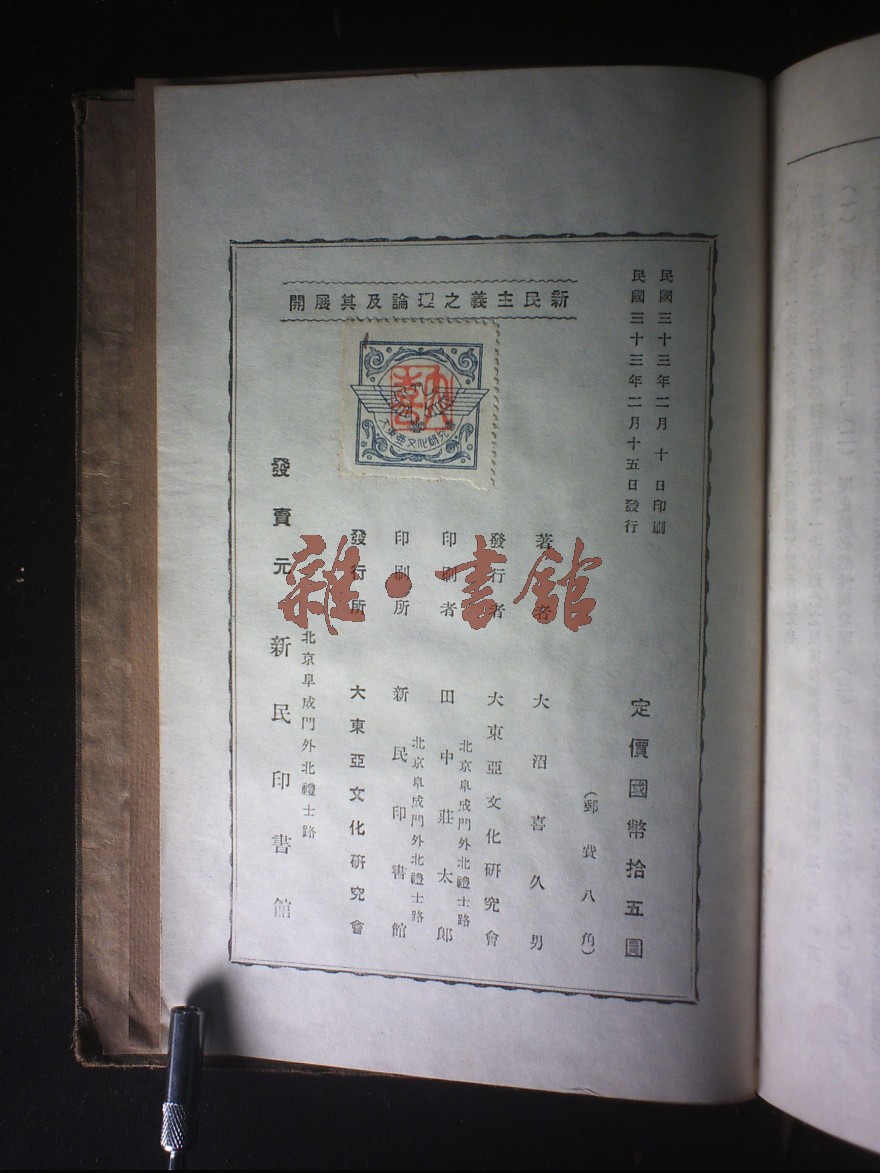 民國三十三年二月十日印刷
民國三十三年二月十五日發行
新民主義之理論及其展開
大東亞文化研究會
定價國幣拾五圓
(郵費八角)
著者 大沼喜久男
發行者 大東亞文化研究會
北京阜成門外北禮士路
印刷者 田中莊太郎
北京阜成門外北禮士路
印刷所 新民印書館
發行所 大東亞文化研究會
北京阜成門外北禮士路
發賣元 新民印書館
雜·書館